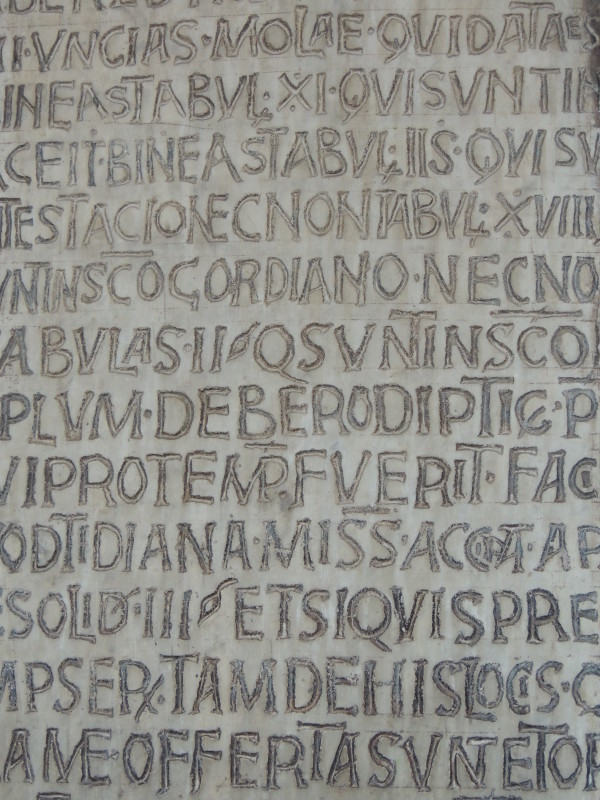 II·VNCIAS·MOLAE·QVIDATAES
INEASTABVL·XI·QVISVNTIN
ACEIT·BINEASTABVL·IIS·QVISV
TESTACIONECNONTABVL·XVIII
VNTINSCOGORDIANO·NECNO
ABVLAS·II QSVNTINSCO
PLVM·DEBERODIPTIC·P
VIPROTEMP·FVERIT·FAC
ODTIDIANAMISS·ACC A·AP
ESOLID·III ETSIQVISPRE
MPSER·TAMDEHISLOCIS·Q
AME·OFFERTASVNETOR